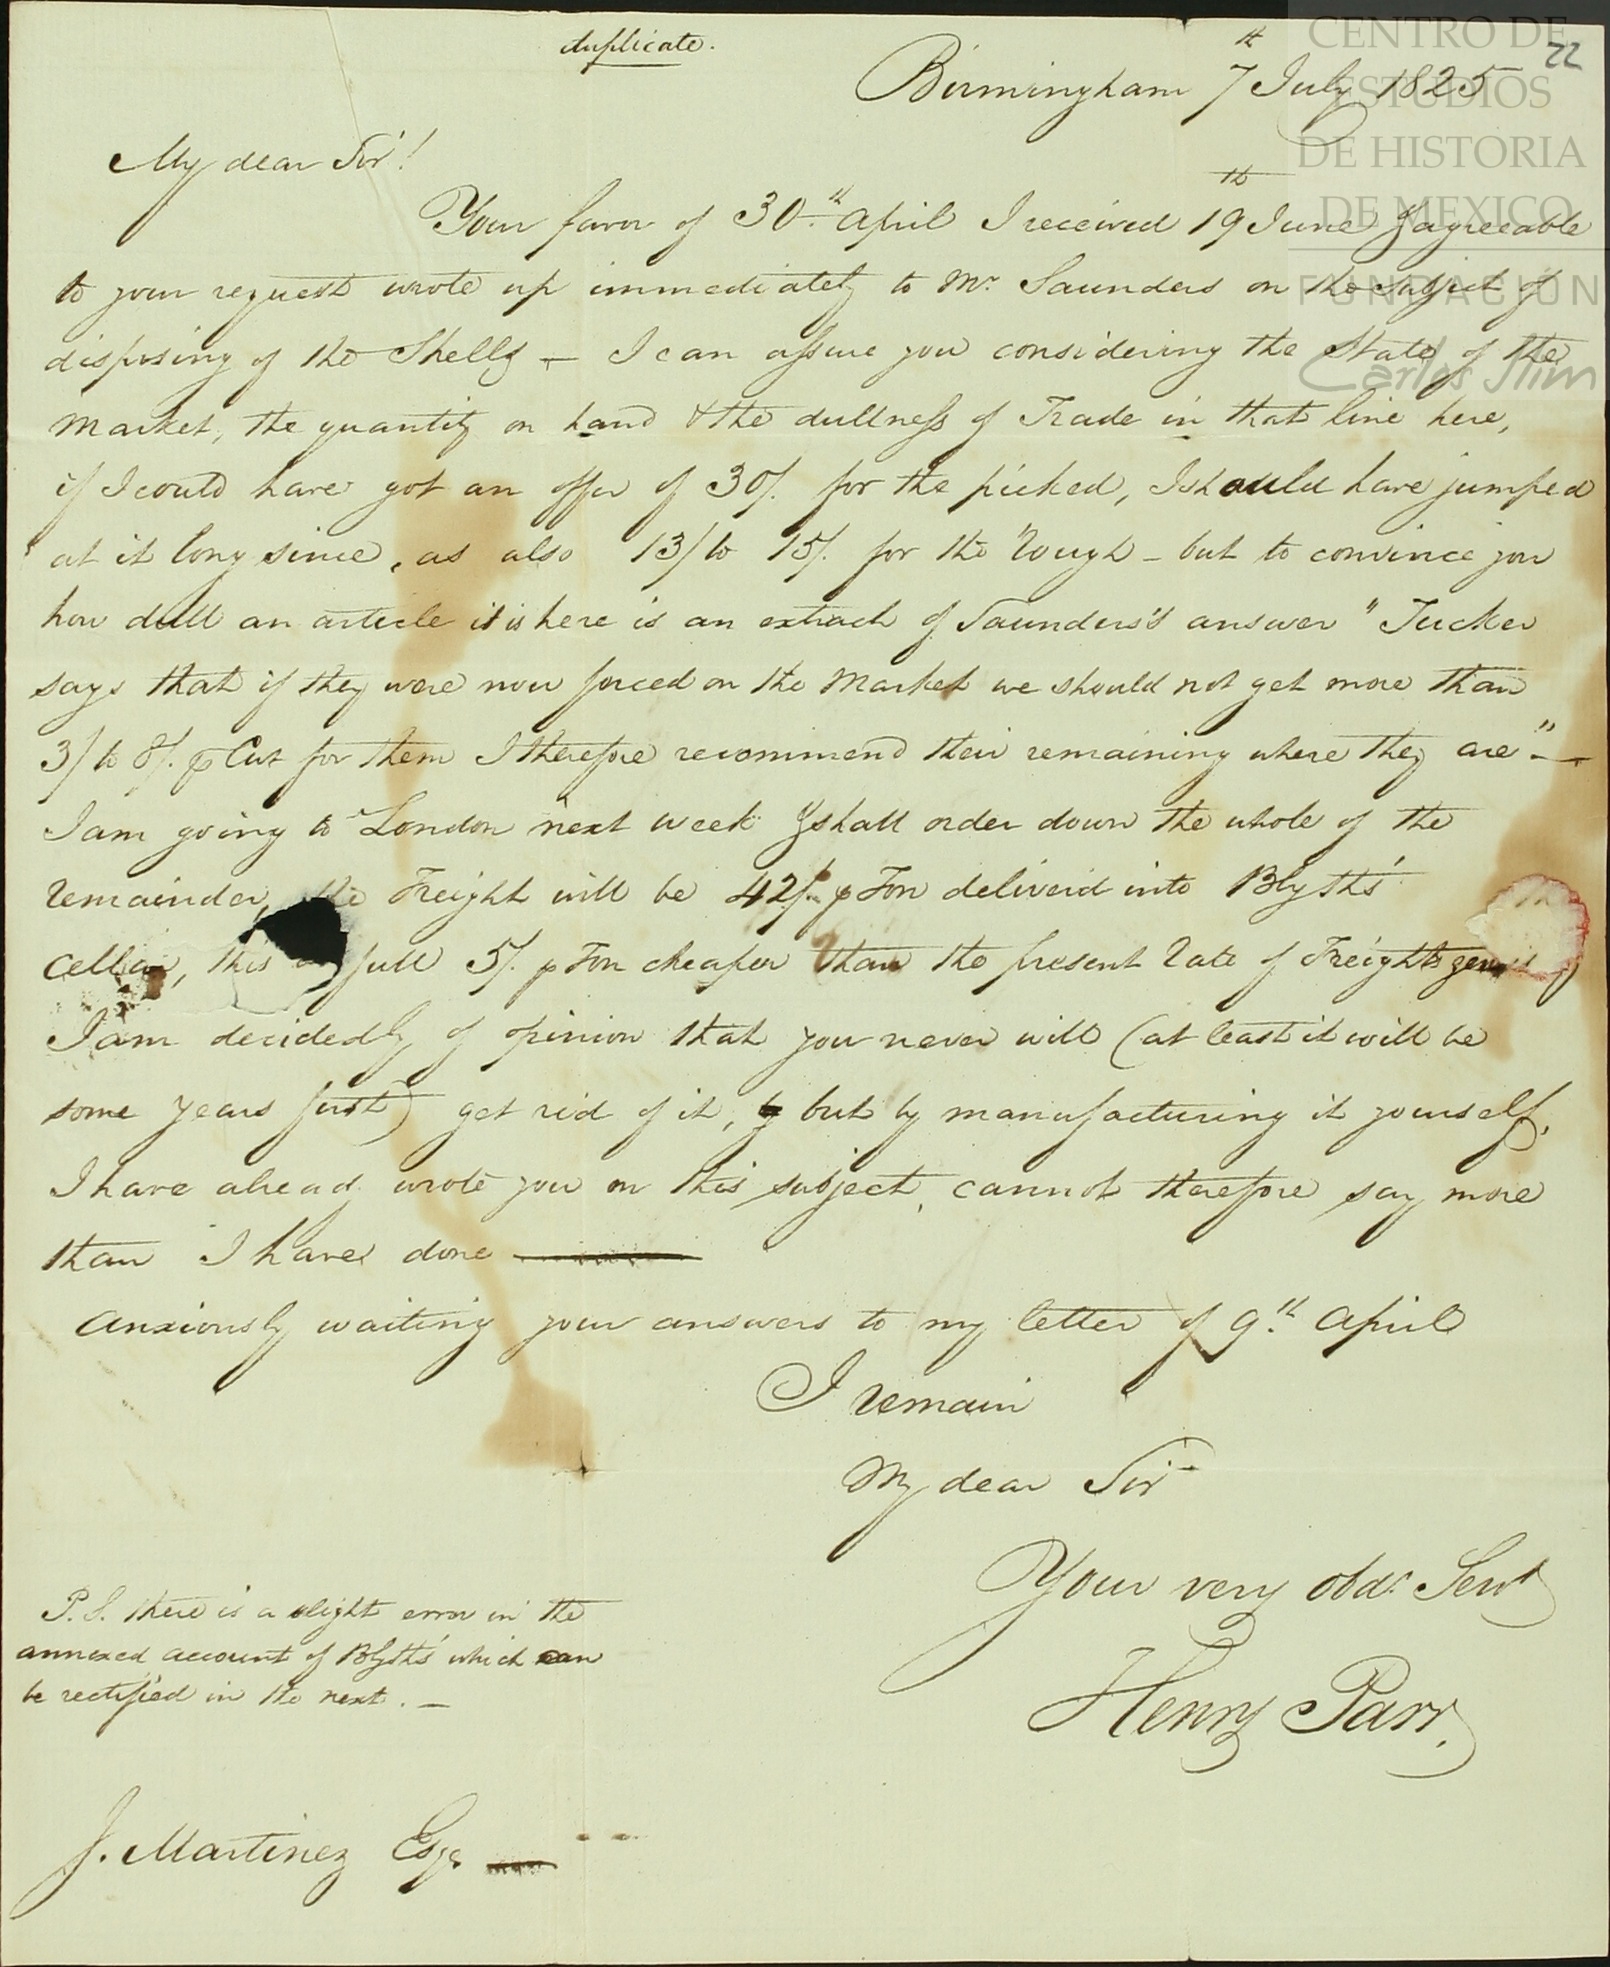 duplicate.
22
Birmingham 7th July 1825
My dear Sir!
Your favor of 30th April I received 19th June & agreeable
to your request wrote up immediately to Mr. Saunders on the subject of
disposing of the Shells — I can assure you considering the State of the
Market, the quantity on hand & the dullness of Trade in that line here,
if I could have got an offer of 30/. for the picked, I should have jumped
at it long since, as also 13/ to 15/. for the rough – but to convince you
how dull an article it is here is an extract of Saunders's answer "Tucker
says that if they were now forced on the Market we should not get more than
3/ to 8/. p Cwt for them I therefore recommend their remaining where they are" —
I am going to London next week & shall order down the whole of the
remainder, the Freight will be 42/. p Ton deliverd into Blyths'
cellar, this full 5/. p Ton cheaper than the present rate of Freights
I am decidedly of opinion that you never will (at least it will be
some years first) get rid of it, but by manufacturing it yourself,
I have already wrote you on this subject, cannot therefore say more
than I have done —
Anxiously waiting your answers to my letter of 9th April
I remain
My dear Sir
Your very obdt. Servt
Henry Parr.
P.S. there is a slight error in the
annexed account of Blyths' which can
be rectified in the next. —
J. Martinez Esqe —
CENTRO DE
ESTUDIOS
DE HISTORIA
DE MEXICO
FUNDACIÓN
Carlos Slim